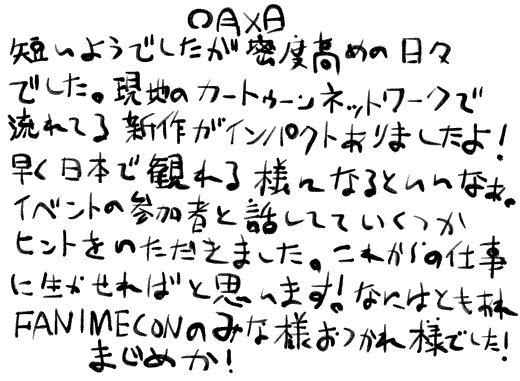 ○月×日
短いようでしたが密度高めの日々
でした。現地のカートゥーンネットワークで
流れてる新作がインパクトありましたよ！
早く日本で観れる様になるといいなぁ。
イベントの参加者と話してていくつか
ヒントをいただきました。これからの仕事
に生かせればと思います！なにはともあれ
FANIMECONのみな様おつかれ様でした！
まじめか！